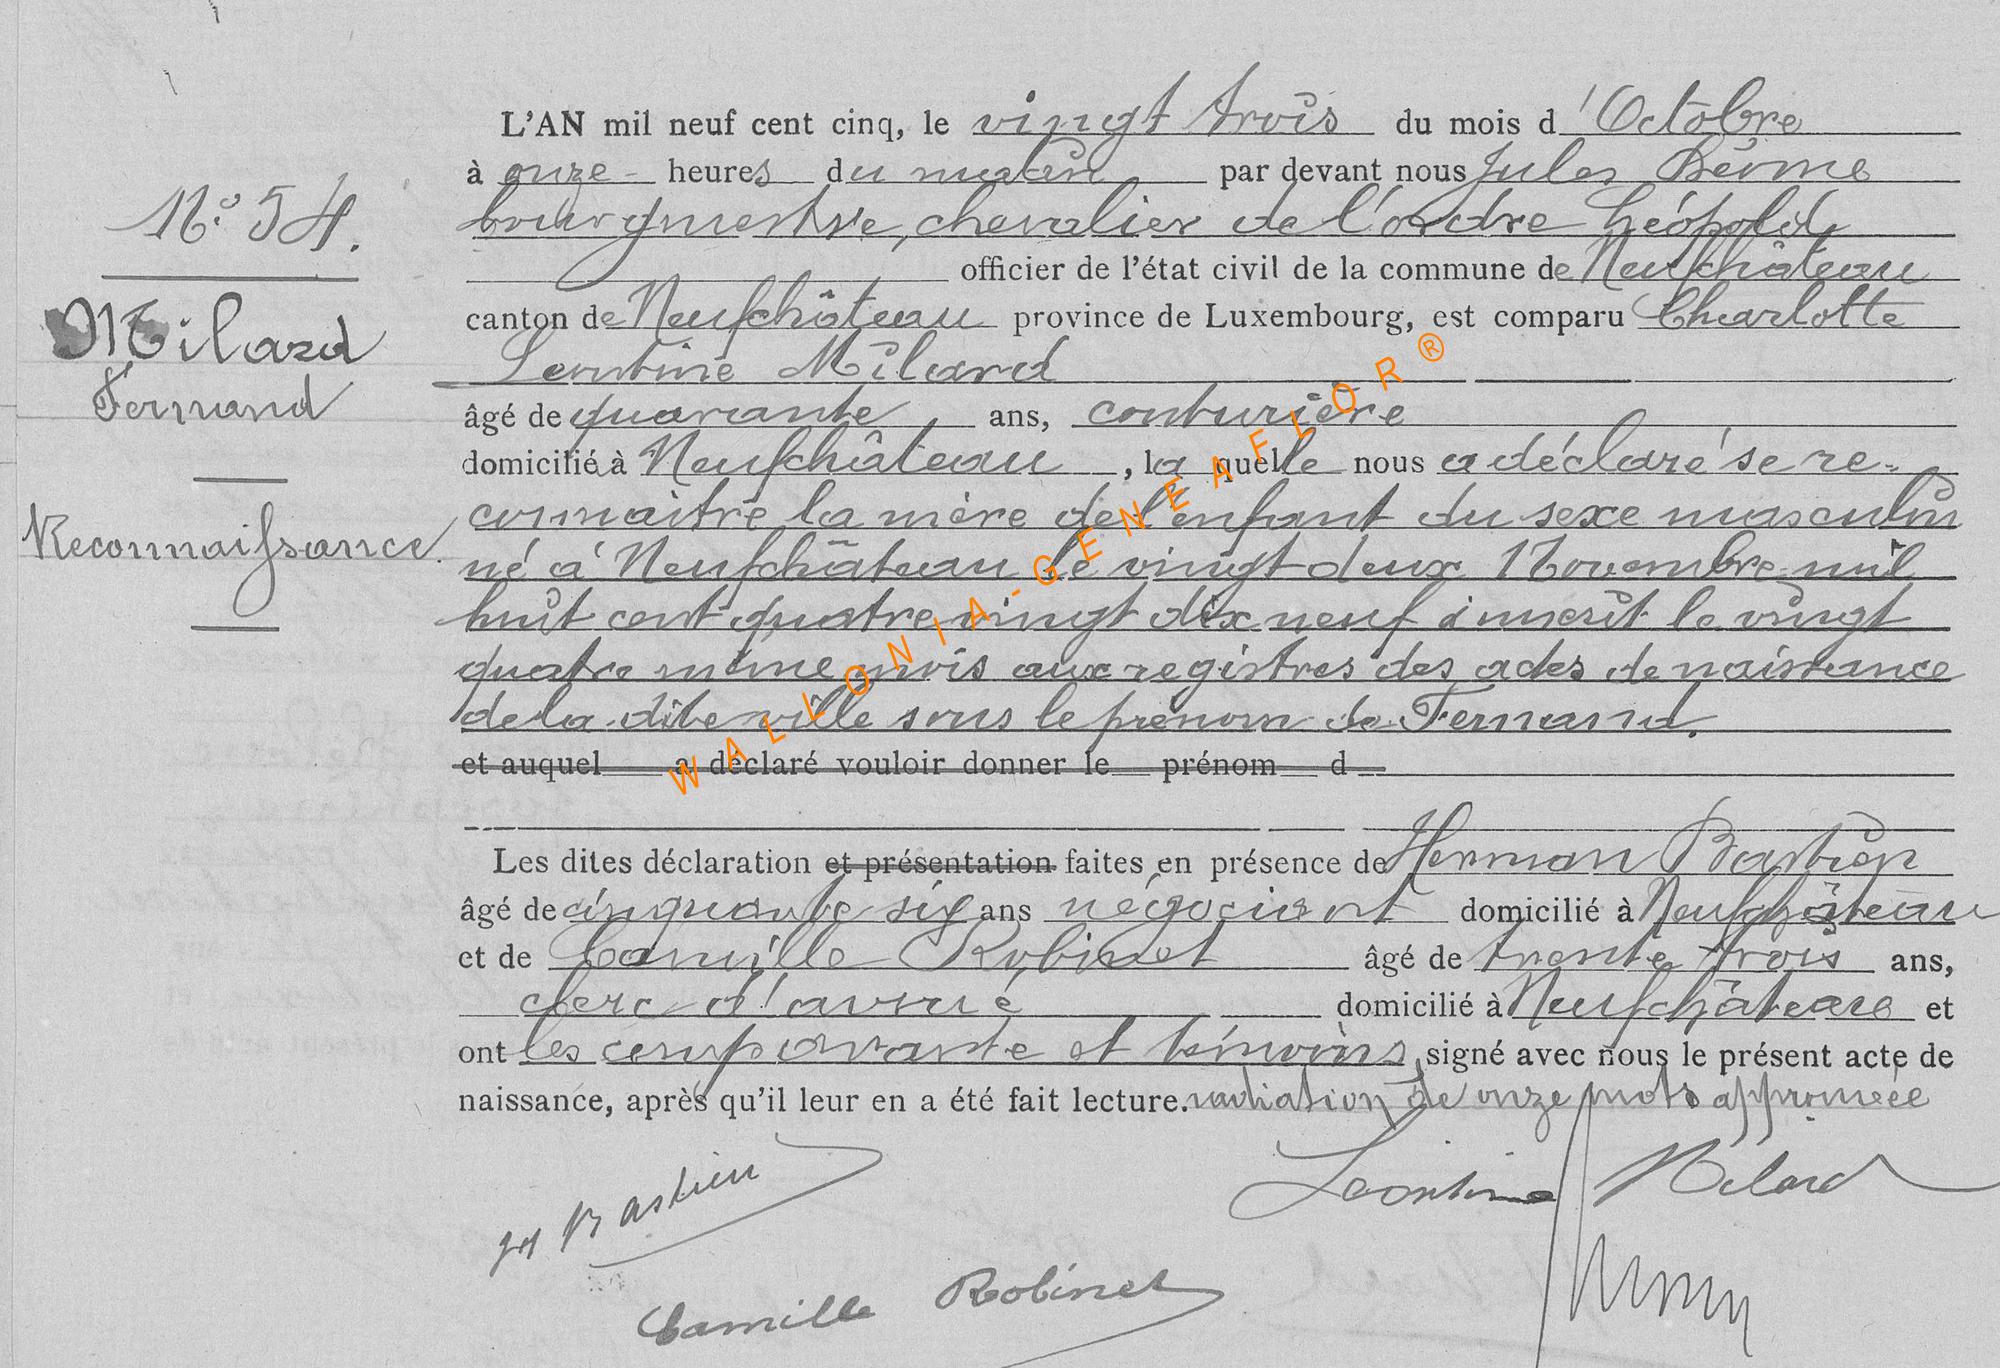 N° 54.
Milard
Fernand
Reconnaissance.
L'AN mil neuf cent cinq, le vingt trois du mois d'Octobre
à onze heures du matin par devant nous Jules
bourgmestre, chevalier de l'ordre Léopold
officier de l'état civil de la commune de Neufchâteau
canton de Neufchâteau province de Luxembourg, est comparu Charlotte
Léontine Milard
âgé de quarante ans, couturière
domicilié à Neufchâteau, la quelle nous a déclaré se re-
connaitre la mère de l'enfant du sexe masculin
né à Neufchâteau le vingt deux Novembre mil
huit cent quatre vingt dix neuf inscrit le vingt
quatre même mois aux registres des actes de naissance
de la dite ville sous le prénom de Fernand.
et auquel a déclaré vouloir donner le prénom d
Les dites déclaration et présentation faites en présence de Herman Bastien
âgé de cinquante six ans négociant domicilié à Neufchâteau
et de Camille Robinet âgé de trente trois ans,
clerc d'avoué domicilié à Neufchâteau et
ont les comparante et témoins signé avec nous le présent acte de
naissance, après qu'il leur en a été fait lecture. radiation de onze mots approuvée
Bastien
Léontine Milard
Camille Robinet
WALLONIA-GENEAFLOR®